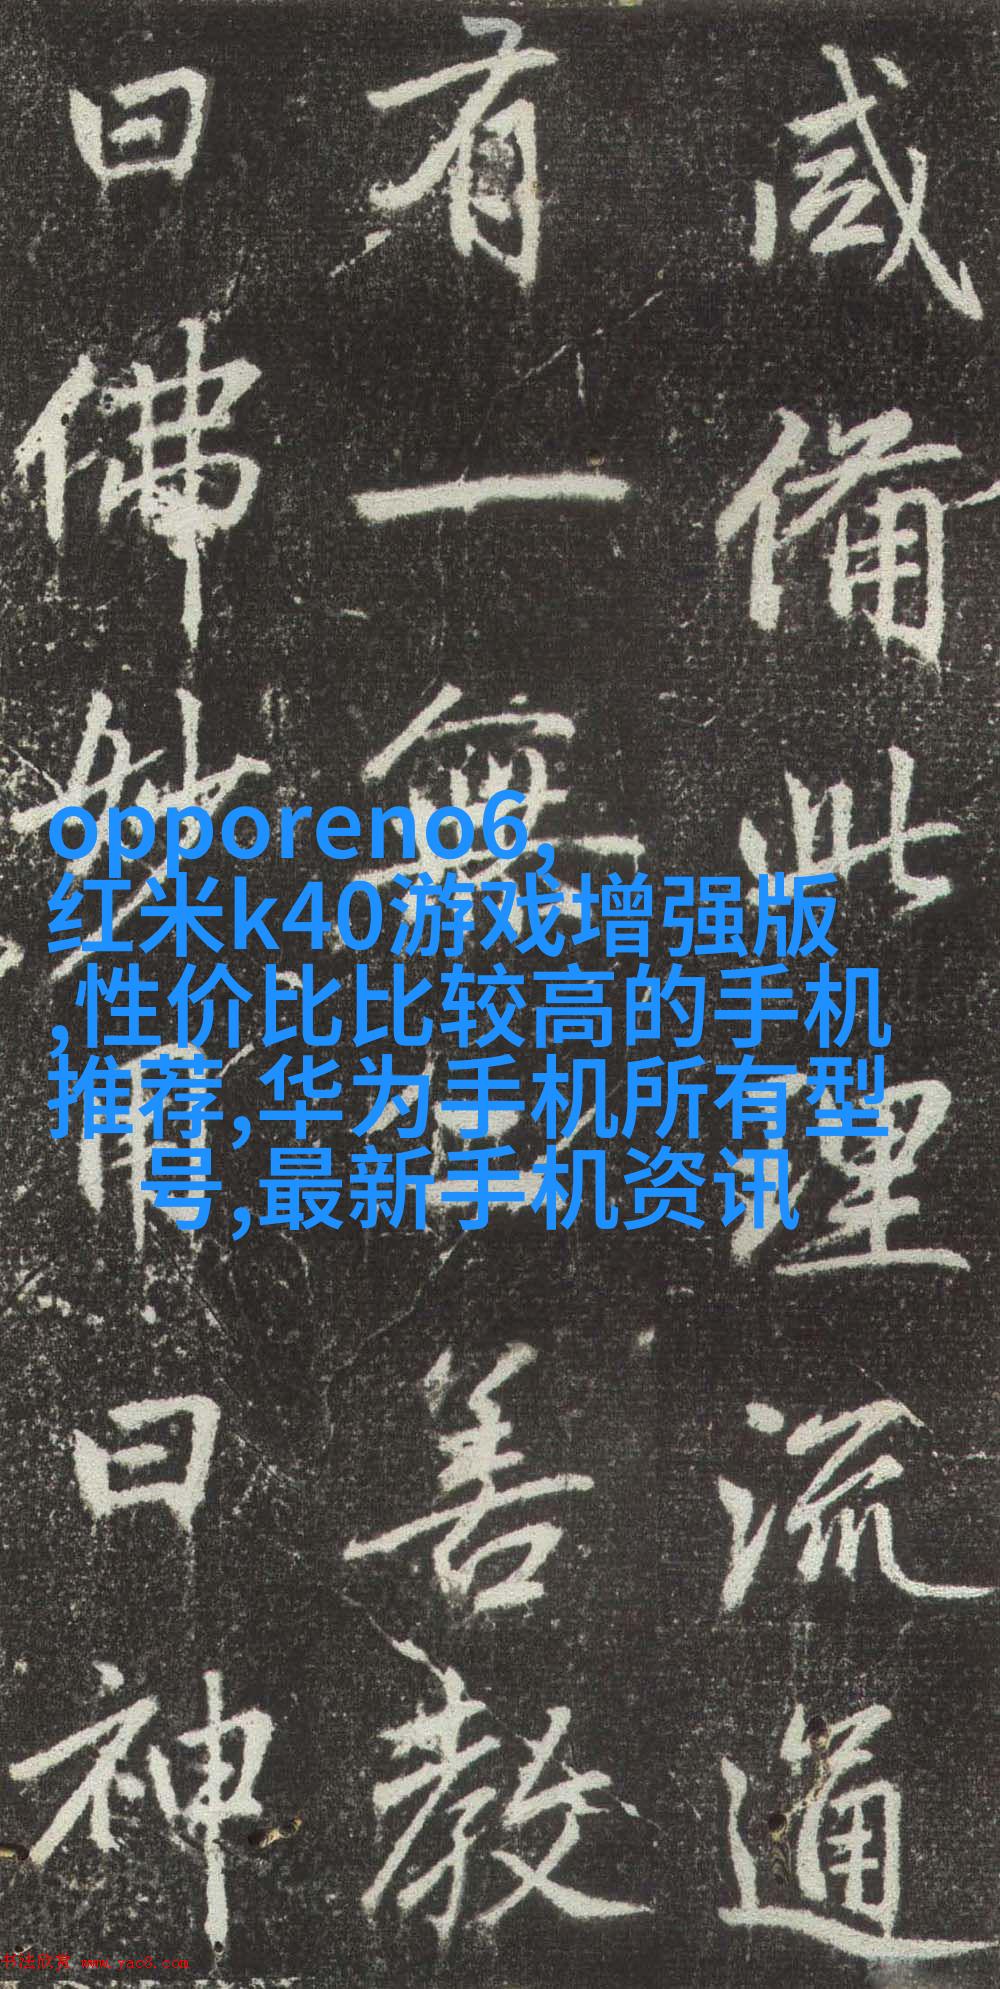 咸備此理流通
有一無善教
曰佛妙用曰神
opporeno6,
红米k40游戏增强版
,性价比比较高的手机
推荐,华为手机所有型
号,最新手机资讯
书法欣赏 www.yac8.com